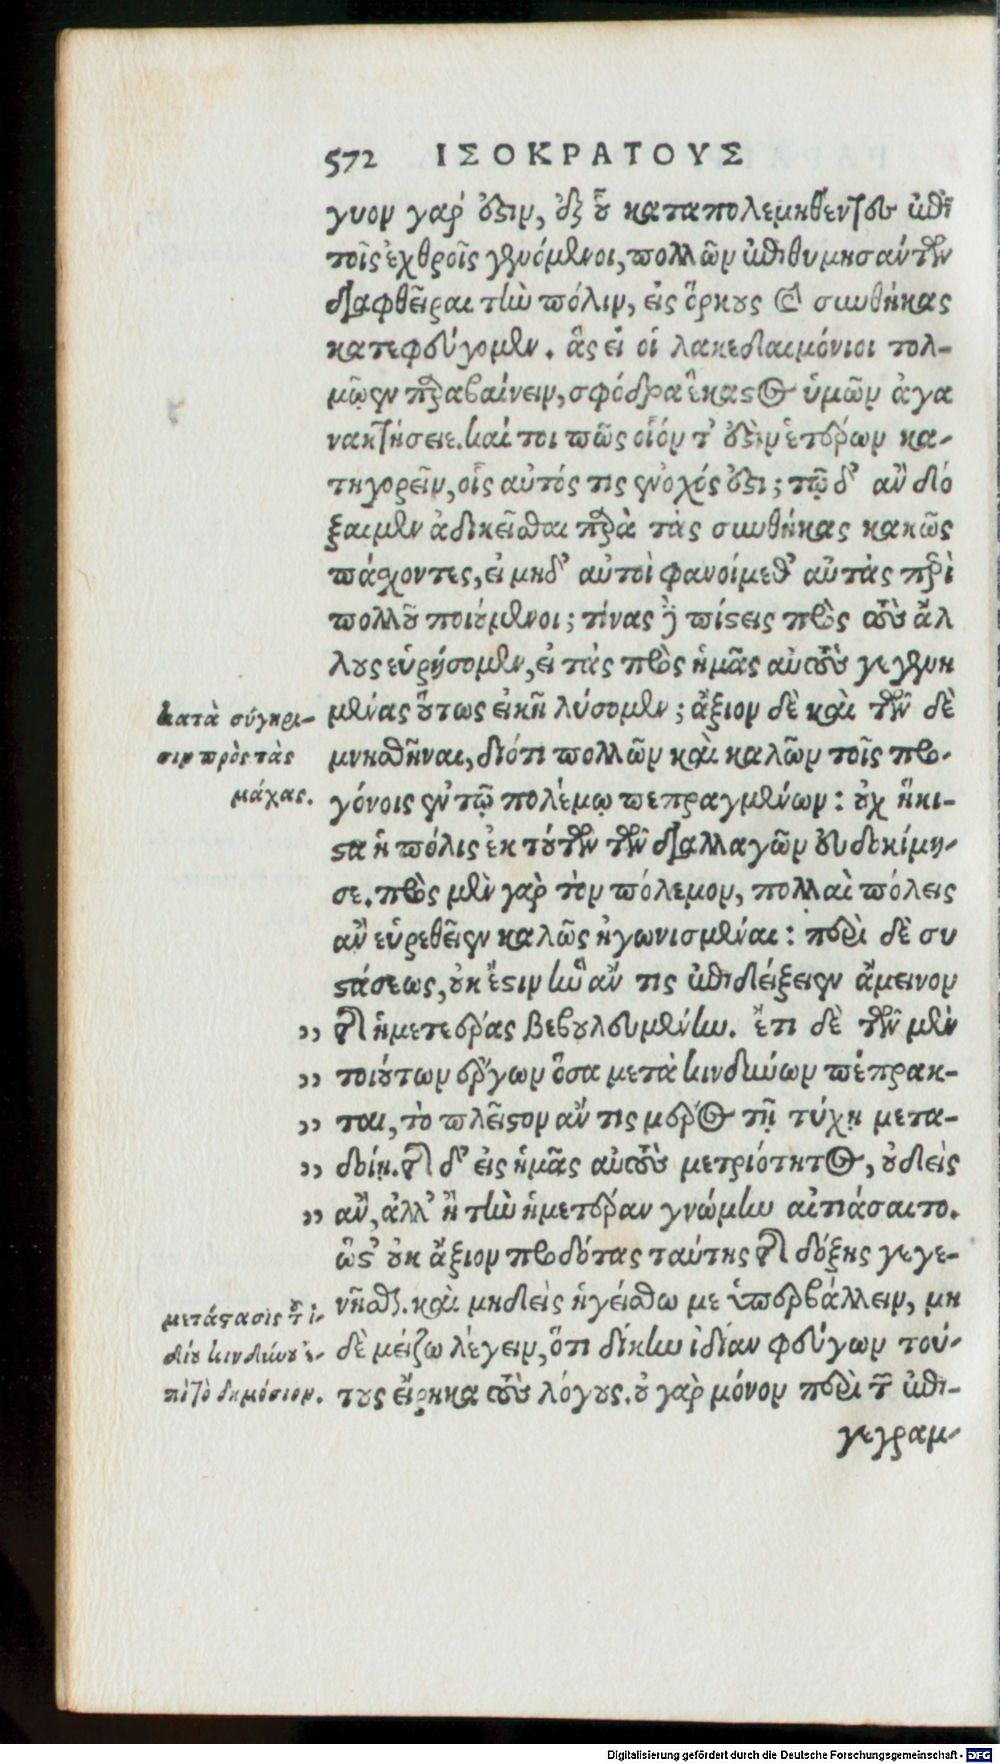 572 ΙΣΟΚΡΑΤΟΥΣ
γυον γάρ ὅϛιν, ἐξ οὗ καταπολεμηθέντες ἐπὶ
τοῖς ἐχθροῖς γενόμενοι, πολλῶν ἐπιθυμησάντων
διαφθεῖραι τὴν πόλιν, εἰς ὅρκους καὶ συνθήκας
κατεφύγομεν. ἃς εἰ οἱ λακεδαιμόνιοι τολ-
μῷεν παραβαίνειν, σφόδρα ἕκαϛος ὑμῶν ἀγα
νακτήσειε. καί τοι πῶς οἷόν τ' ἐϛὶν ἑτέρων κα-
τηγορεῖν, οἷς αὐτός τις ἔνοχός ἐϛι; τῷ δ' ἂν δό
ξαιμεν ἀδικεῖσθαι παρὰ τὰς συνθήκας κακῶς
πάσχοντες, εἰ μηδ' αὐτοὶ φανοίμεθ' αὐτὰς περὶ
πολλοῦ ποιούμενοι; τίνας δὲ πίϛεις πρὸς τοὺς ἄλ
λους εὑρήσομεν, εἰ τὰς πρὸς ἡμᾶς αὐτοὺς γεγενη
μένας οὕτως εἰκῆ λύσομεν; ἄξιον δὲ καὶ τῶν δὲ
μνησθῆναι, διότι πολλῶν καὶ καλῶν τοῖς προ-
γόνοις ἐν τῷ πολέμῳ πεπραγμένων: οὐχ ἥκι-
ϛα ἡ πόλις ἐκ τούτων τῶν διαλλαγῶν εὐδοκίμη-
σε. πρὸς μὲν γὰρ τὸν πόλεμον, πολλαὶ πόλεις
ἂν εὑρεθεῖεν καλῶς ἠγωνισμέναι: περὶ δὲ συ
ϛάσεως, οὐκ ἔϛιν ἣν ἄν τις ἐπιδείξειεν ἄμεινον
,, τῆς ἡμετέρας βεβουλευμένην. ἔτι δὲ τῶν μὲν
,, τοιούτων ἔργων ὅσα μετὰ κινδύνων πέπρακ-
,, ται, τὸ πλεῖϛον ἄν τις μέρος τῇ τύχῃ μετα-
,, δοίη. τῆς δ' εἰς ἡμᾶς αὐτοὺς μετριότητος, οὐδεὶς
,, ἂν, ἀλλ' ἢ τὴν ἡμετέραν γνώμην αἰτιάσαιτο.
ὥϛ' οὐκ ἄξιον προδότας ταύτης τῆς δόξης γεγε-
νῆσθαι. καὶ μηδεὶς ἡγείσθω με ὑπερβάλλειν, μη
δὲ μείζω λέγειν, ὅτι δίκην ἰδίαν φεύγων τού-
τους εἴρηκα τοὺς λόγους. οὐ γὰρ μόνον περὶ τῶν ἐπι-
γεγραμ-
κατὰ σύγκρι-
σιν πρὸς τὰς
μάχας.
μετάϛασις τοῦ ἰ-
δίου κινδύνου ἐ-
πὶ τὸ δημόσιον.
Digitalisierung gefördert durch die Deutsche Forschungsgemeinschaft - DFG